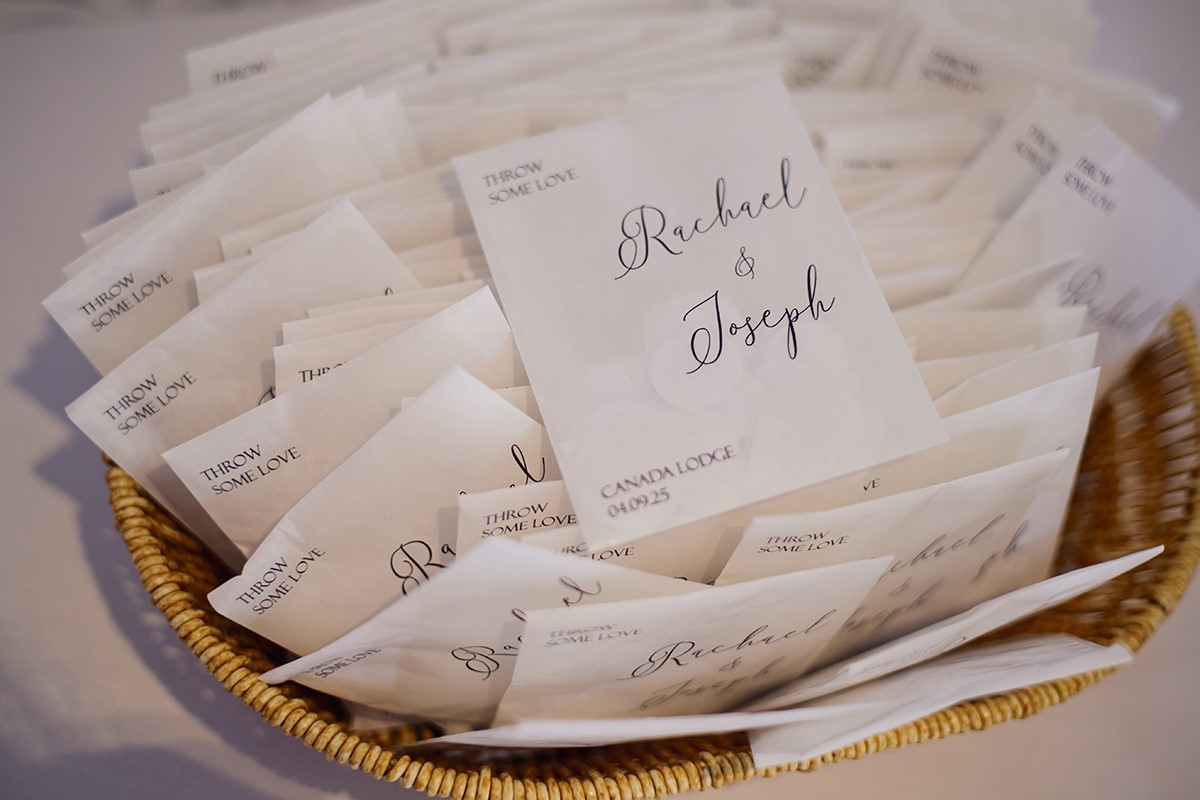 THROW
SOME LOVE
Rachael
&
Joseph
CANADA LODGE
04.09.25
THROW
THROW
SOME LOVE
THROW
SOME LOVE
THROW
SOME LOVE
THROW
SOME LOVE
THROW
SOME LOVE
THROW
SOME LOVE
Rachael
THROW
SOME LOVE
THROW
SOME LOVE
Rachael
&
Joseph
SOME LOVE